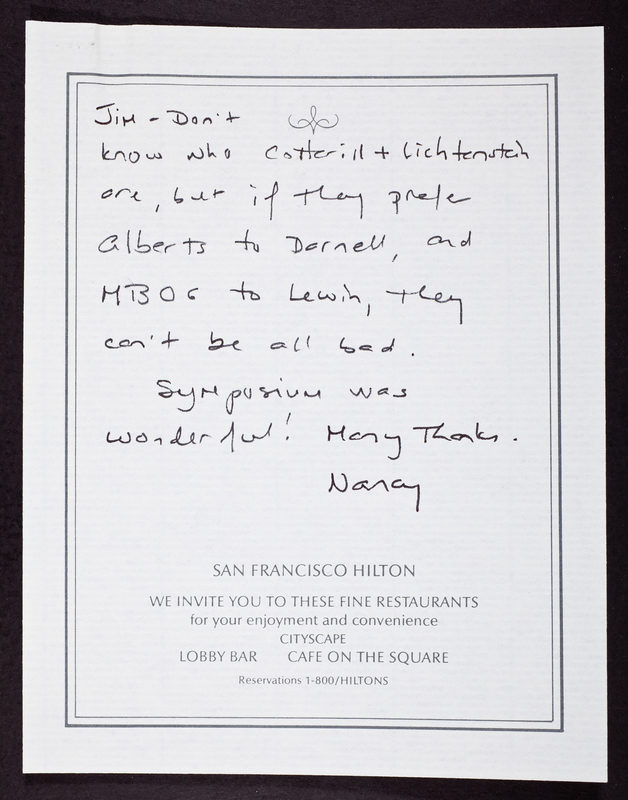 Jim - Don't
know who Cotterill + Lichtenstein
are, but if they prefer
Alberts to Darnell, and
MBOC to Lewin, they
can't be all bad.
Symposium was
wonderful! Many Thanks.
Nancy
SAN FRANCISCO HILTON
WE INVITE YOU TO THESE FINE RESTAURANTS
for your enjoyment and convenience
CITYSCAPE
LOBBY BAR CAFE ON THE SQUARE
Reservations 1-800/HILTONS